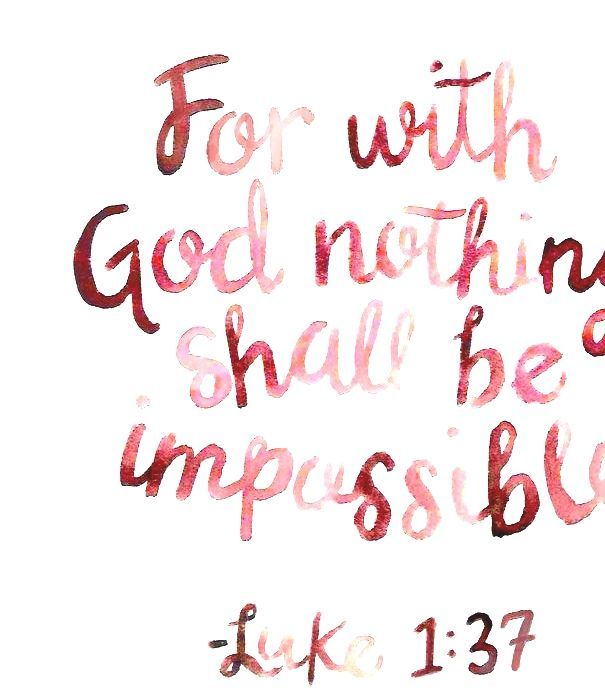 For with
God nothing
shall be
impossible
-Luke 1:37